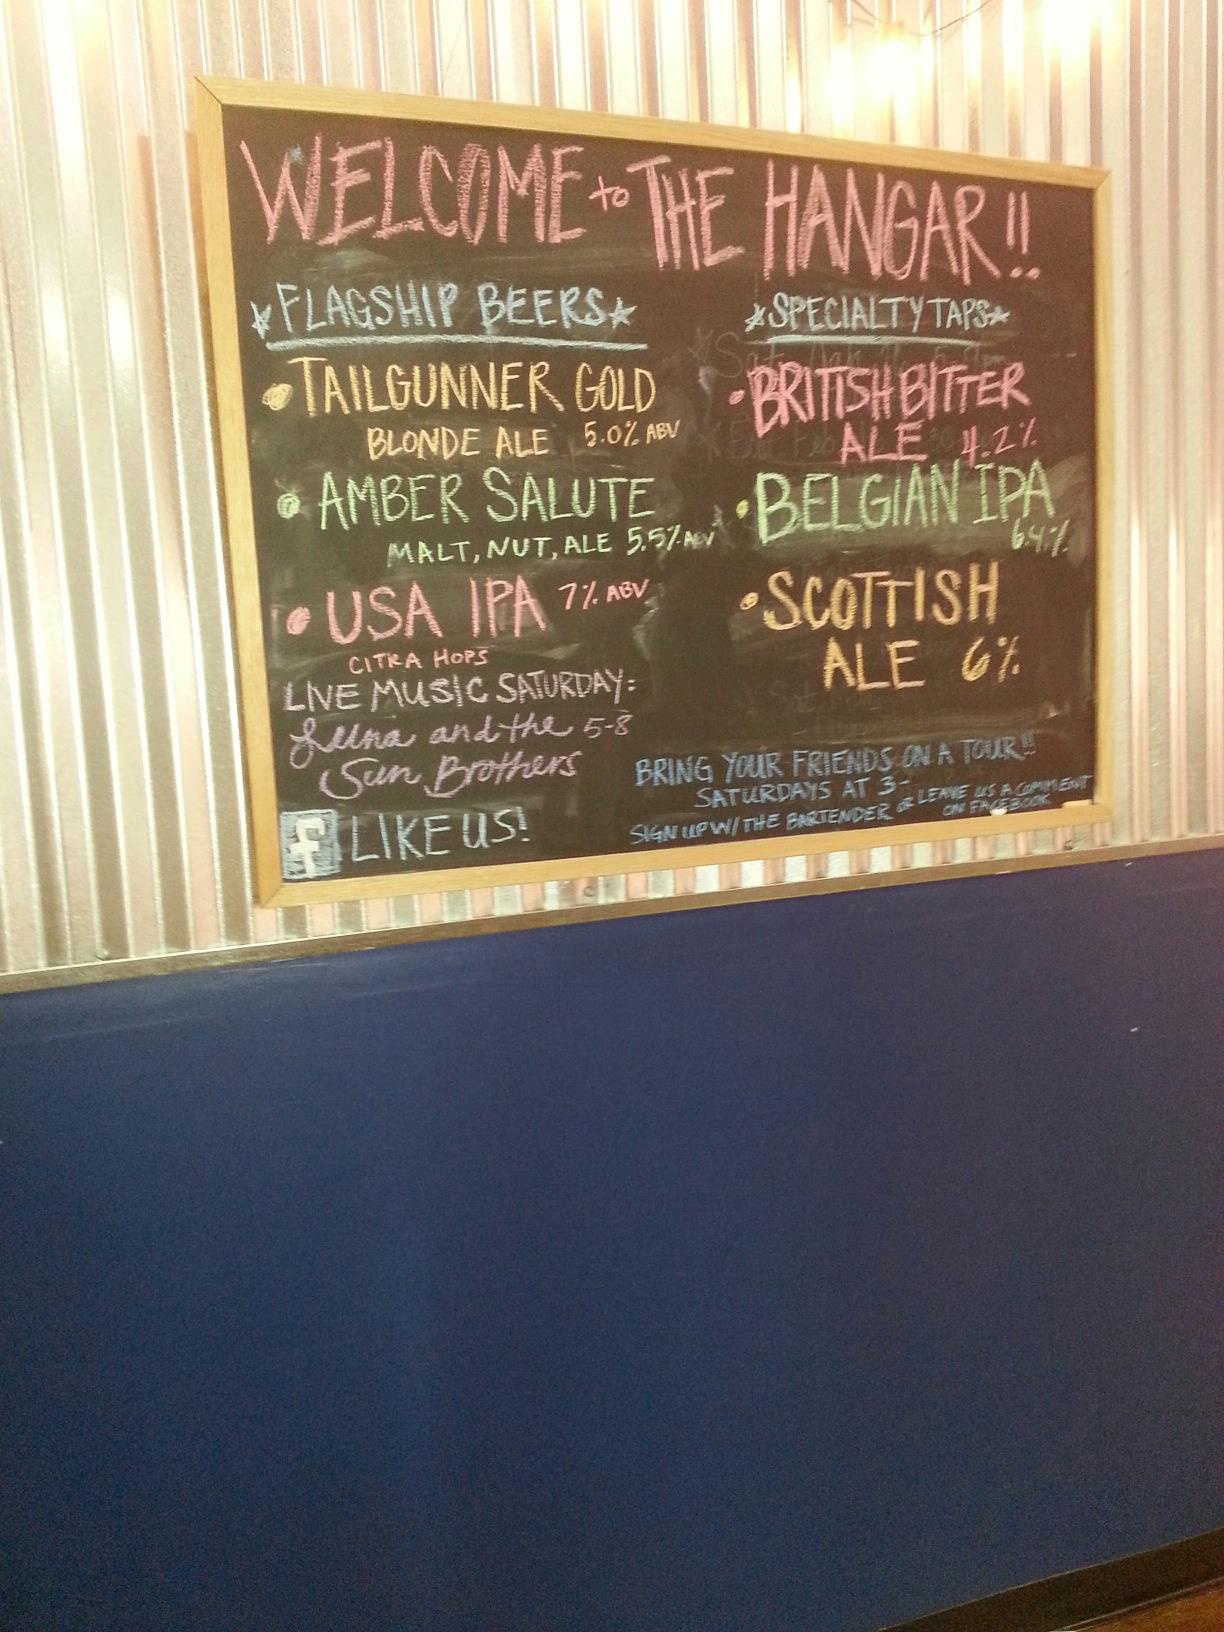 WELCOME to THE HANGAR!!
FLAGSHIP BEERS
TAILGUNNER GOLD
BLONDE ALE 5.0% ABV
AMBER SALUTE
MALT, NUT, ALE 5.5% ABV
USA IPA 7% ABV
CITRA HOPS
LIVE MUSIC SATURDAY:
and the 5-8
Sun Brothers
f LIKE US!
SPECIALTY TAPS
BRITISH BITTER
ALE 4.2%
BELGIAN IPA
6.4%
SCOTTISH
ALE 6%
BRING YOUR FRIENDS ON A TOUR!!
SATURDAYS AT 3-
SIGN UP W/ THE BARTENDER or LEAVE US A COMMENT
ON FACEBOOK